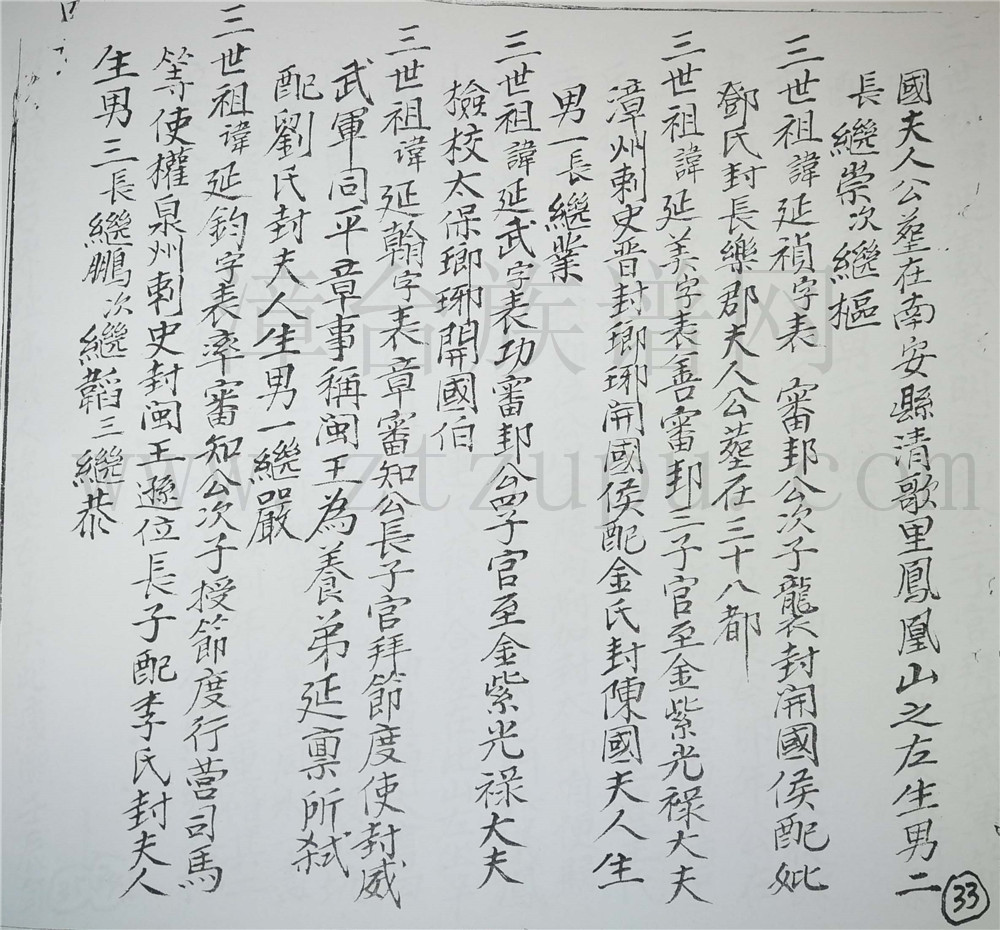 國夫人公塟在南安縣清歌里鳳凰山之左生男二
長繼崇次繼樞
三世祖諱延禎字表 審邽公次子襲封開國侯配妣
鄧氏封長樂郡夫人公塟在三十八都
三世祖諱延美字表善審邽三子官至金紫光祿大夫
漳州刺史晋封瑯琊開國侯配金氏封陳國夫人生
男一長繼業
三世祖諱延武字表功審邽公四子官至金紫光祿大夫
檢校太保瑯琊開國伯
三世祖諱延翰字表章審知公長子官拜節度使封威
武軍同平章事稱闽王為養弟延禀所弑
配劉氏封夫人生男一繼嚴
三世祖諱延鈞字表率審知公次子授節度行營司馬
等使權泉州刺史封闽王遜位長子配李氏封夫人
生男三長繼鵬次繼韜三繼恭
33
漳台族谱网
www.ztzupu.com